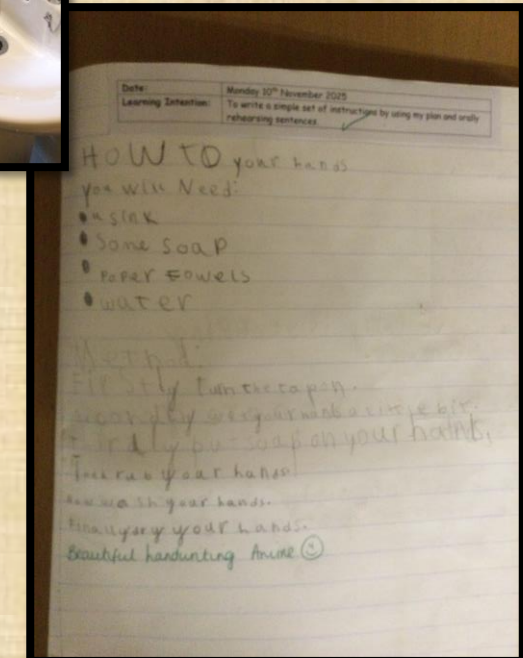 Date: Monday 10th November 2025
Learning Intention: To write a simple set of instructions by using my plan and orally
rehearsing sentences
HOW TO your hands
you will Need:
• a sink
• Some soap
• Paper towels
• water
Method:
Firstly turn the tap on.
secondly wet your hands a little bit.
Thirdly put soap on your hands,
Then rub your hands
Now wash your hands.
Finally dry your hands.
Beautiful handwriting